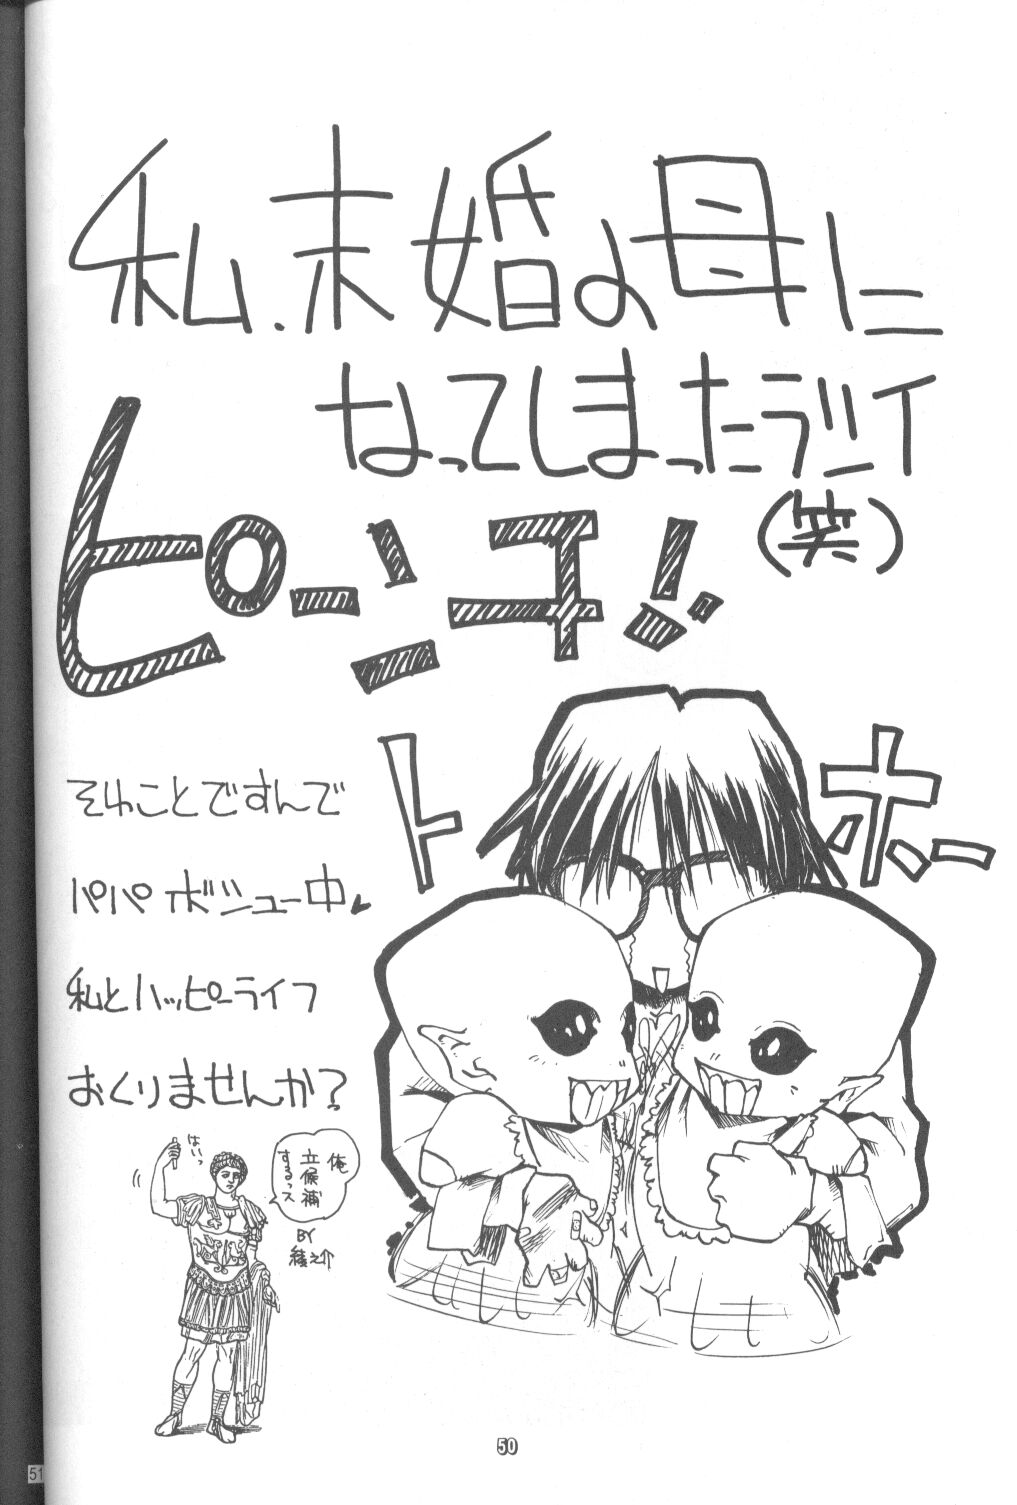 私、未婚の母に
なってしまったラシイ
(笑)
ピーンチ!!
トホホー
それことですんで
パパボシュー中
私とハッピーライフ
おくりませんか?
はいっ
俺
立候補
するっス
BY
綾之介
50
51